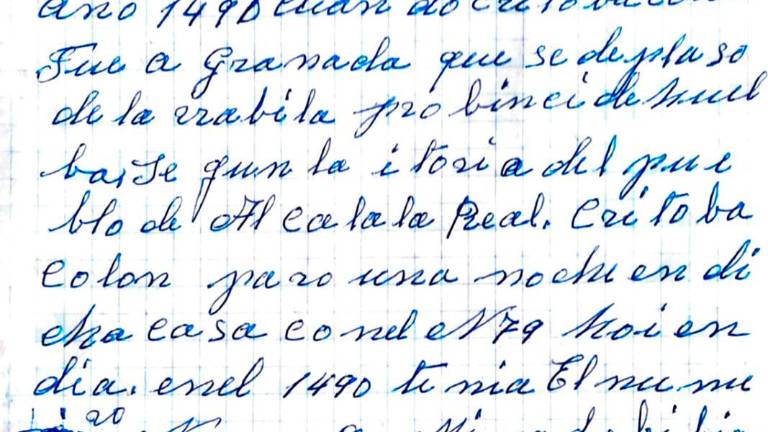 año 1490 cuan do cri to ba col
Fue a Granada que se de pla so
de la rrabila pro binci de huel
ba, se gun la i toria del pue
blo de Al ca la la Real. Cri to ba
Colon paro una noche en di
cha casa co nel N 79 hoi en
dia. enel 1490 te nia El nu me
20